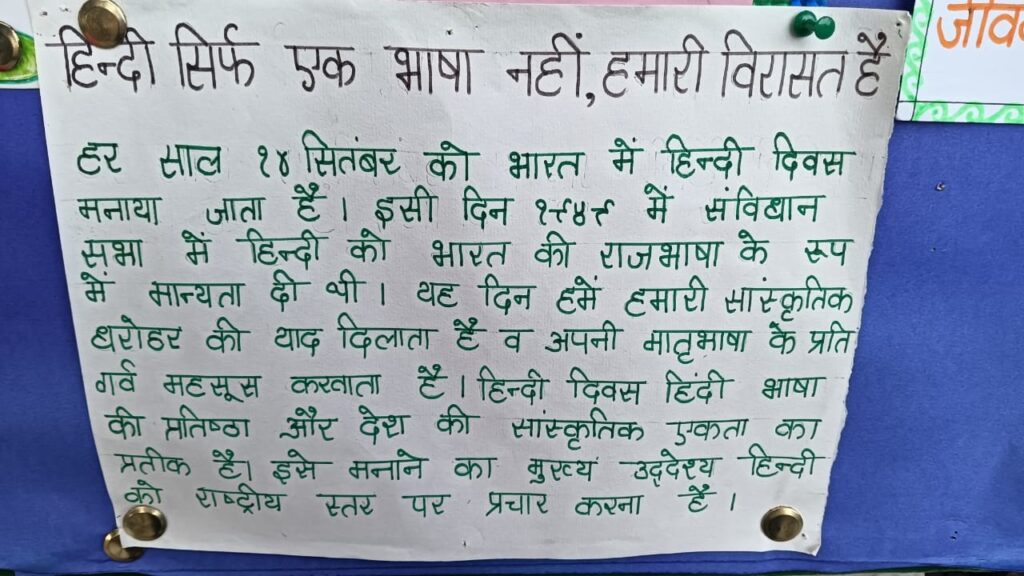 हिन्दी सिर्फ एक भाषा नहीं, हमारी विरासत है
हर साल १४ सितंबर को भारत में हिन्दी दिवस
मनाया जाता है । इसी दिन १९४९ में संविधान
सभा में हिन्दी को भारत की राजभाषा के रूप
में मान्यता दी थी । यह दिन हमें हमारी सांस्कृतिक
धरोहर की याद दिलाता है व अपनी मातृभाषा के प्रति
गर्व महसूस करवाता है । हिन्दी दिवस हिंदी भाषा
की प्रतिष्ठा और देश की सांस्कृतिक एकता का
प्रतीक है। इसे मनाने का मुख्य उद्देश्य हिन्दी
को राष्ट्रीय स्तर पर प्रचार करना है ।